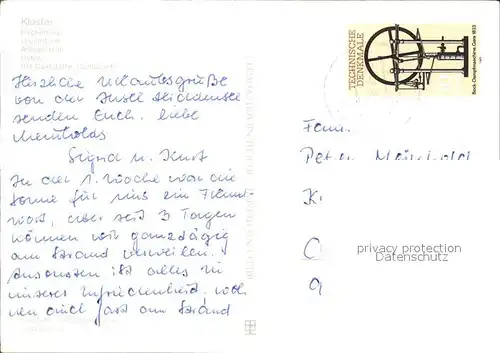 Kloster
Herzliche Urlaubsgrüße
von der Insel Hiddensee
senden Euch, liebe
Meinholds
Sigrid u. Kurt
In der 1. Woche war die
Sonne für uns ein Fremd-
wort, aber seit 3 Tagen
können wir ganztägig
am Strand verweilen.
Ansonsten ist alles zu
unserer Zufriedenheit.
auch fast am Strand
TECHNISCHE
DENKMALE
Bock-Dampfmaschine, Gera 1833
Fam.
Peter Meinhold
K
privacy protection
Datenschutz
9